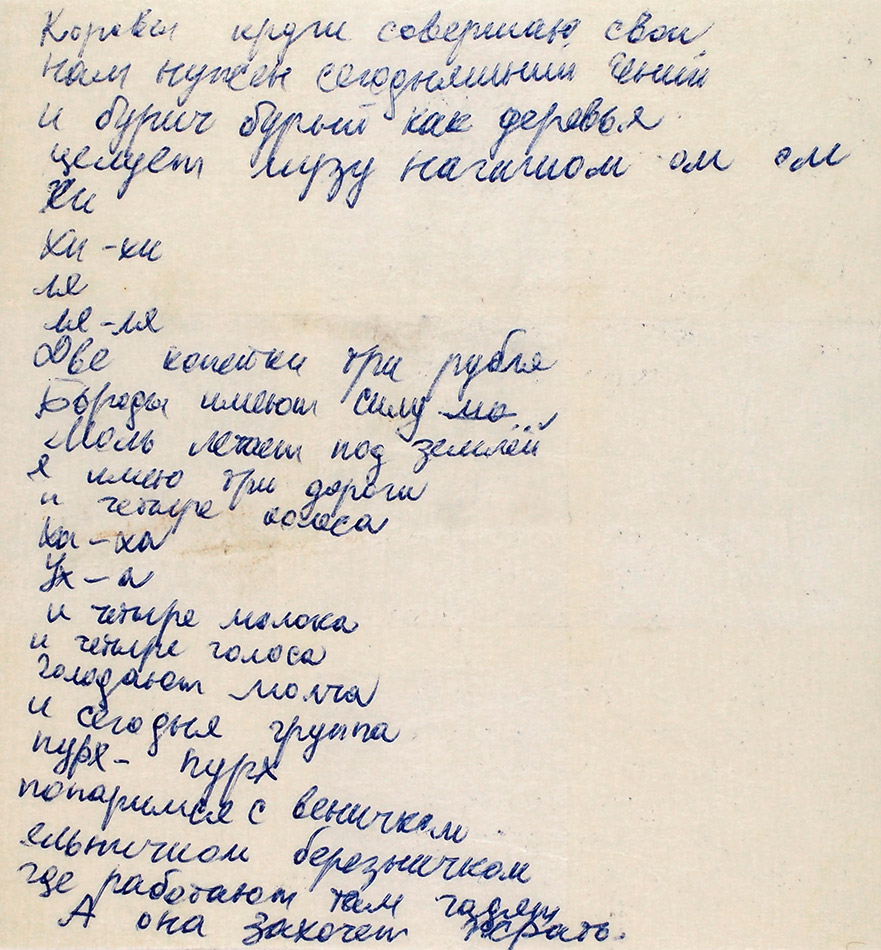 Коровы круги совершают свои
нам нужен сегодняшний гений
и бурич бурый как деревья
целует музу нагишом ом ом
Хи
Хи-хи
ля
ля-ля
Две копейки три рубля
Бороды имеют силу мо...
Моль летает под землёй
я имею три дороги
и четыре колоса
Ха-ха
Ух-а
и четыре молока
и четыре голоса
Голодают молча
и сегодня группа
пурх- пурх
попаримся с веничком
ельничком березничком
где работают там гадят
А она захочет жрать.